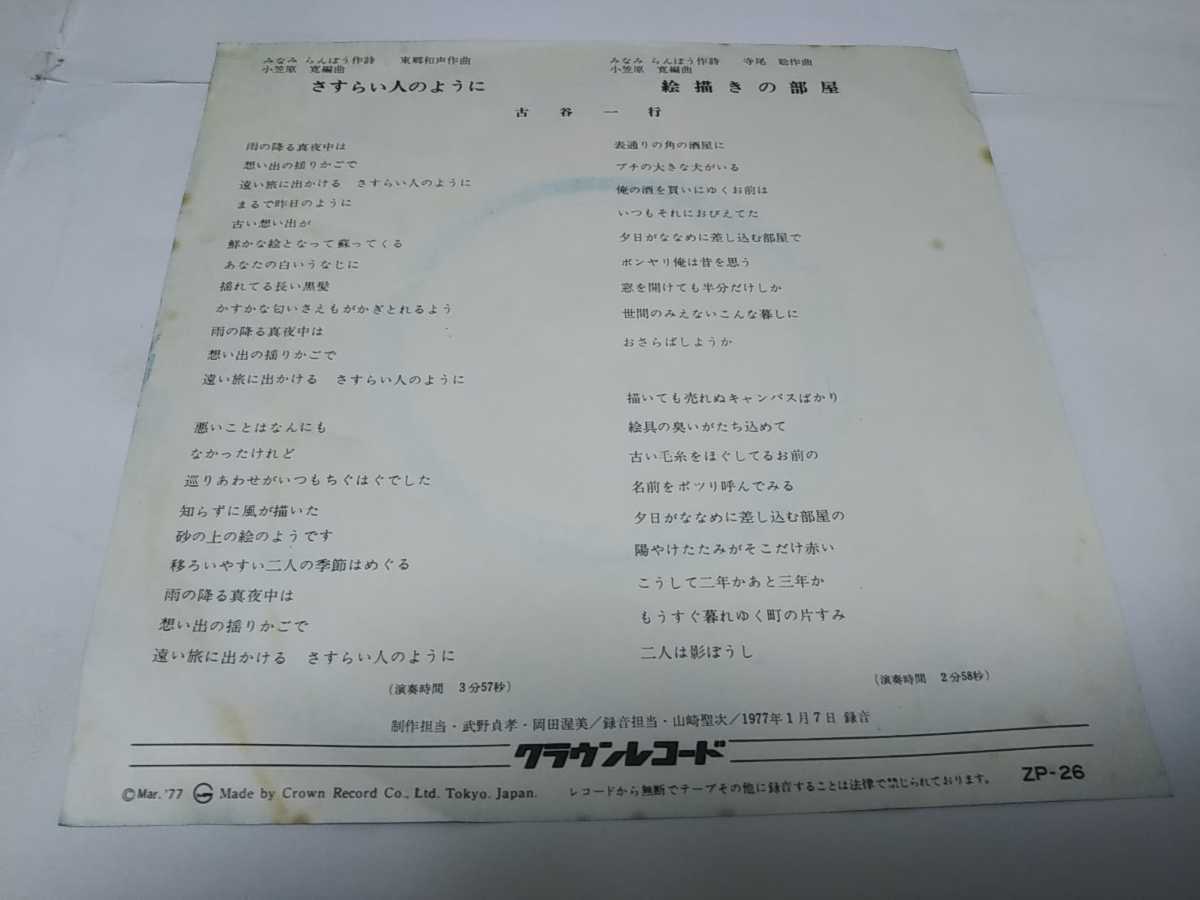 みなみ らんぼう作詩　東郷和声作曲
小笠原　寛編曲
さすらい人のように
みなみ らんぼう作詩　寺尾　聡作曲
小笠原　寛編曲
絵描きの部屋
古谷一行
雨の降る真夜中は
想い出の揺りかごで
遠い旅に出かける　さすらい人のように
まるで昨日のように
古い想い出が
鮮かな絵となって蘇ってくる
あなたの白いうなじに
揺れてる長い黒髪
かすかな匂いさえもがかぎとれるよう
雨の降る真夜中は
想い出の揺りかごで
遠い旅に出かける　さすらい人のように
悪いことはなんにも
なかったけれど
巡りあわせがいつもちぐはぐでした
知らずに風が描いた
砂の上の絵のようです
移ろいやすい二人の季節はめぐる
雨の降る真夜中は
想い出の揺りかごで
遠い旅に出かける　さすらい人のように
(演奏時間　3分57秒)
表通りの角の酒屋に
ブチの大きな犬がいる
俺の酒を買いにゆくお前は
いつもそれにおびえてた
夕日がななめに差し込む部屋で
ボンヤリ俺は昔を思う
窓を開けても半分だけしか
世間のみえないこんな暮しに
おさらばしようか
描いても売れぬキャンバスばかり
絵具の臭いがたち込めて
古い毛糸をほぐしてるお前の
名前をポツリ呼んでみる
夕日がななめに差し込む部屋の
陽やけたたみがそこだけ赤い
こうして二年かあと三年か
もうすぐ暮れゆく町の片すみ
二人は影ぼうし
(演奏時間　2分58秒)
制作担当・武野貞孝・岡田渥美／録音担当・山崎聖次／1977年1月7日 録音
クラウンレコード
©Mar. '77 Made by Crown Record Co., Ltd. Tokyo. Japan.　レコードから無断でテープその他に録音することは法律で禁じられております。　ZP-26